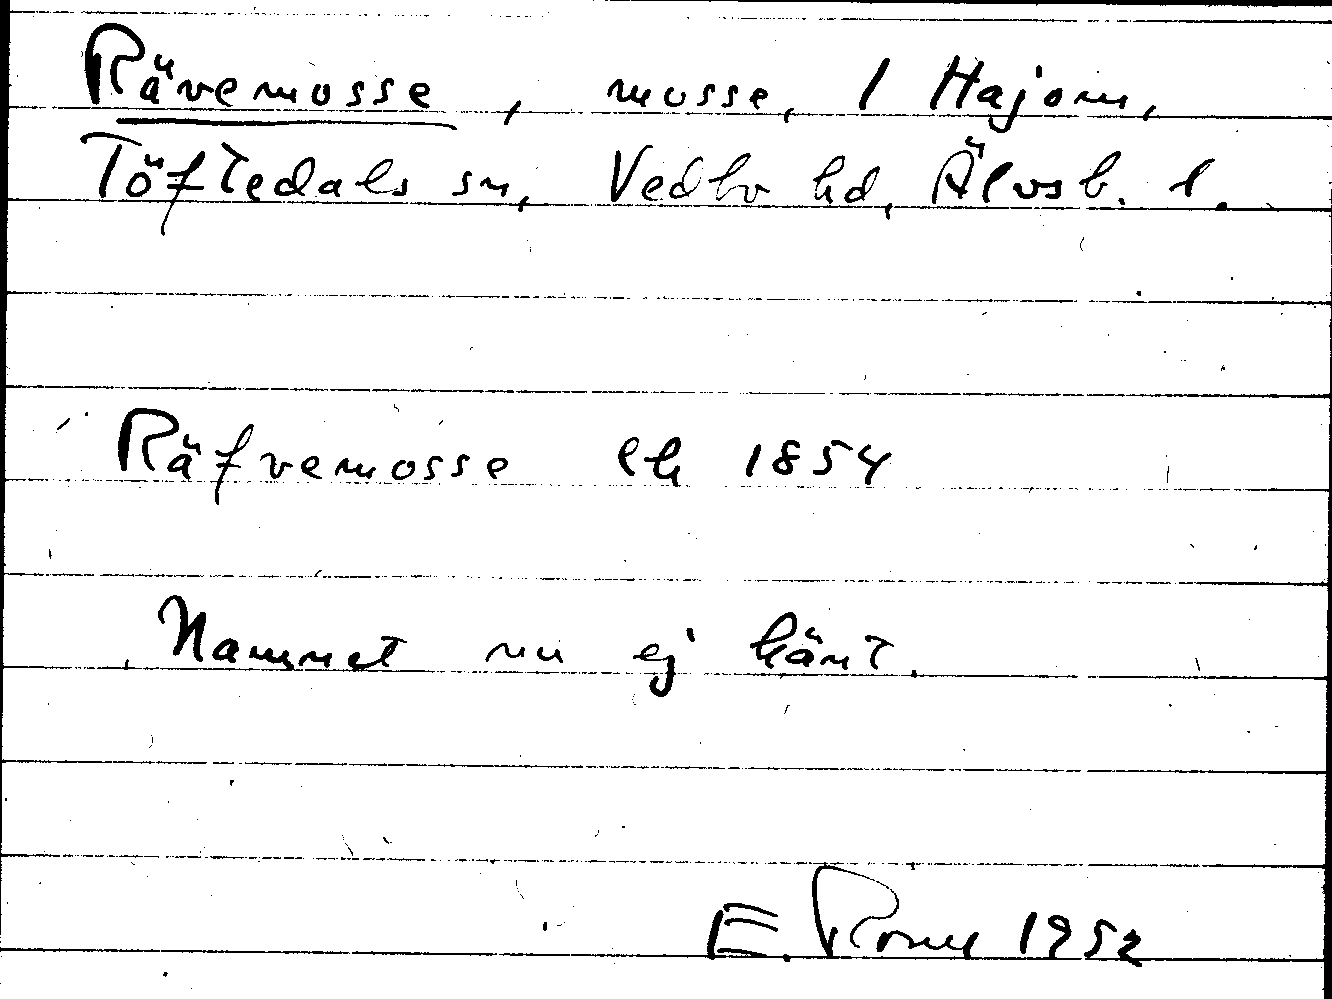 Rävemosse, mosse, 1 Hajom,
Töftedals sn, Vedbo hd, Älvsb. l.
Räfvemosse lh 1854
Namnet nu ej känt.
E. 1952